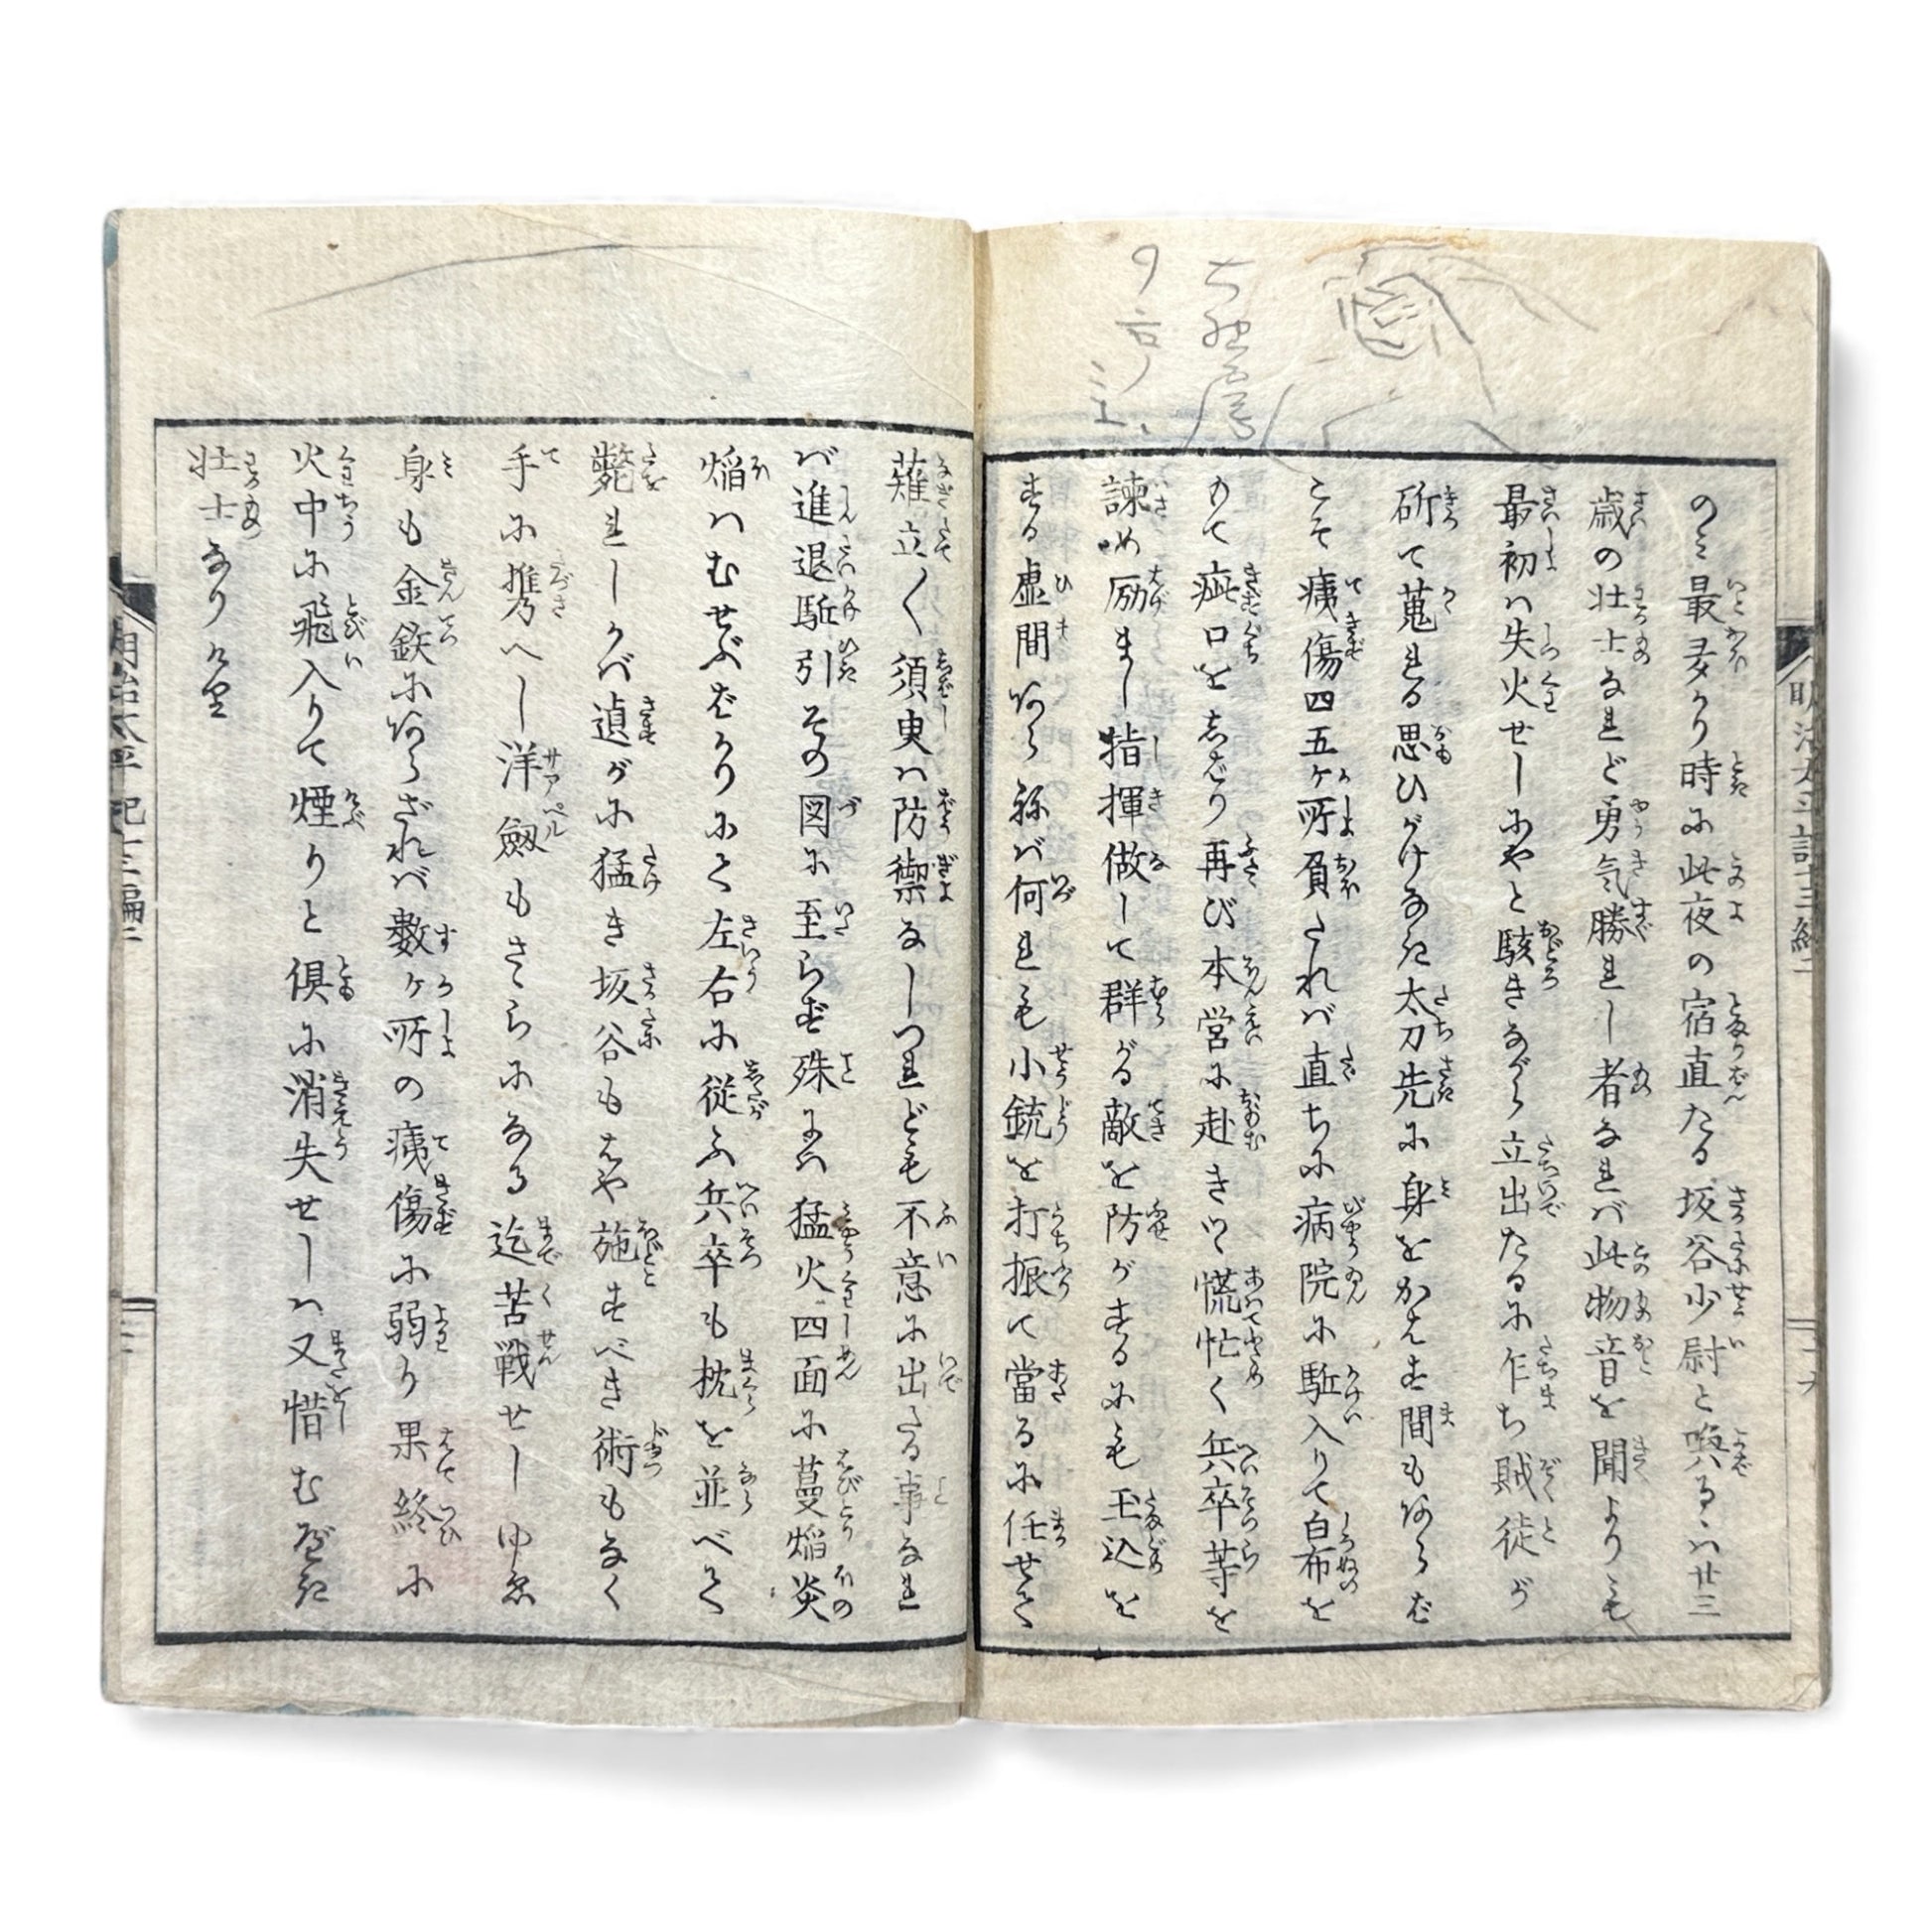 のミ最多かり時に此夜の宿直たる坂谷少尉と喚るハ廿三
歳の壮士なれど勇気勝れし者なれバ此物音を聞よりも
最初ハ失火せしにやと駭きながら立出たるに乍ち賊徒が
斫て蒐れる思ひがけなき太刀先に身をかはす間もあらず
こそ痍傷四五ヶ所負たれバ直ちに病院に駈入りて白布を
もて疵口をしばり再び本営に赴きつゝ慌忙く兵卒等を
諫め励まし指揮做して群がる敵を防がするにも玉込を
する虚間あらねバ何れも小銃を打振て當るに任せて
薙立〱須臾ハ防禦なしつれども不意に出たる事なれ
バ進退駈引その図に至らず殊にハ猛火四面に蔓焔炎
焔ハむせぶばかりにて左右に従ふ兵卒も枕を並べて
斃れしかバ遉がに猛き坂谷もはや施すべき術もなく
手に携へし洋劔もさゝらになる迄苦戦せしゆゑ
身も金鉄にあらざれバ數ヶ所の痍傷に弱り果終に
火中に飛入りて煙りと倶に消失せしハ又惜むべき
壮士なりけり
明治太平記十三編二